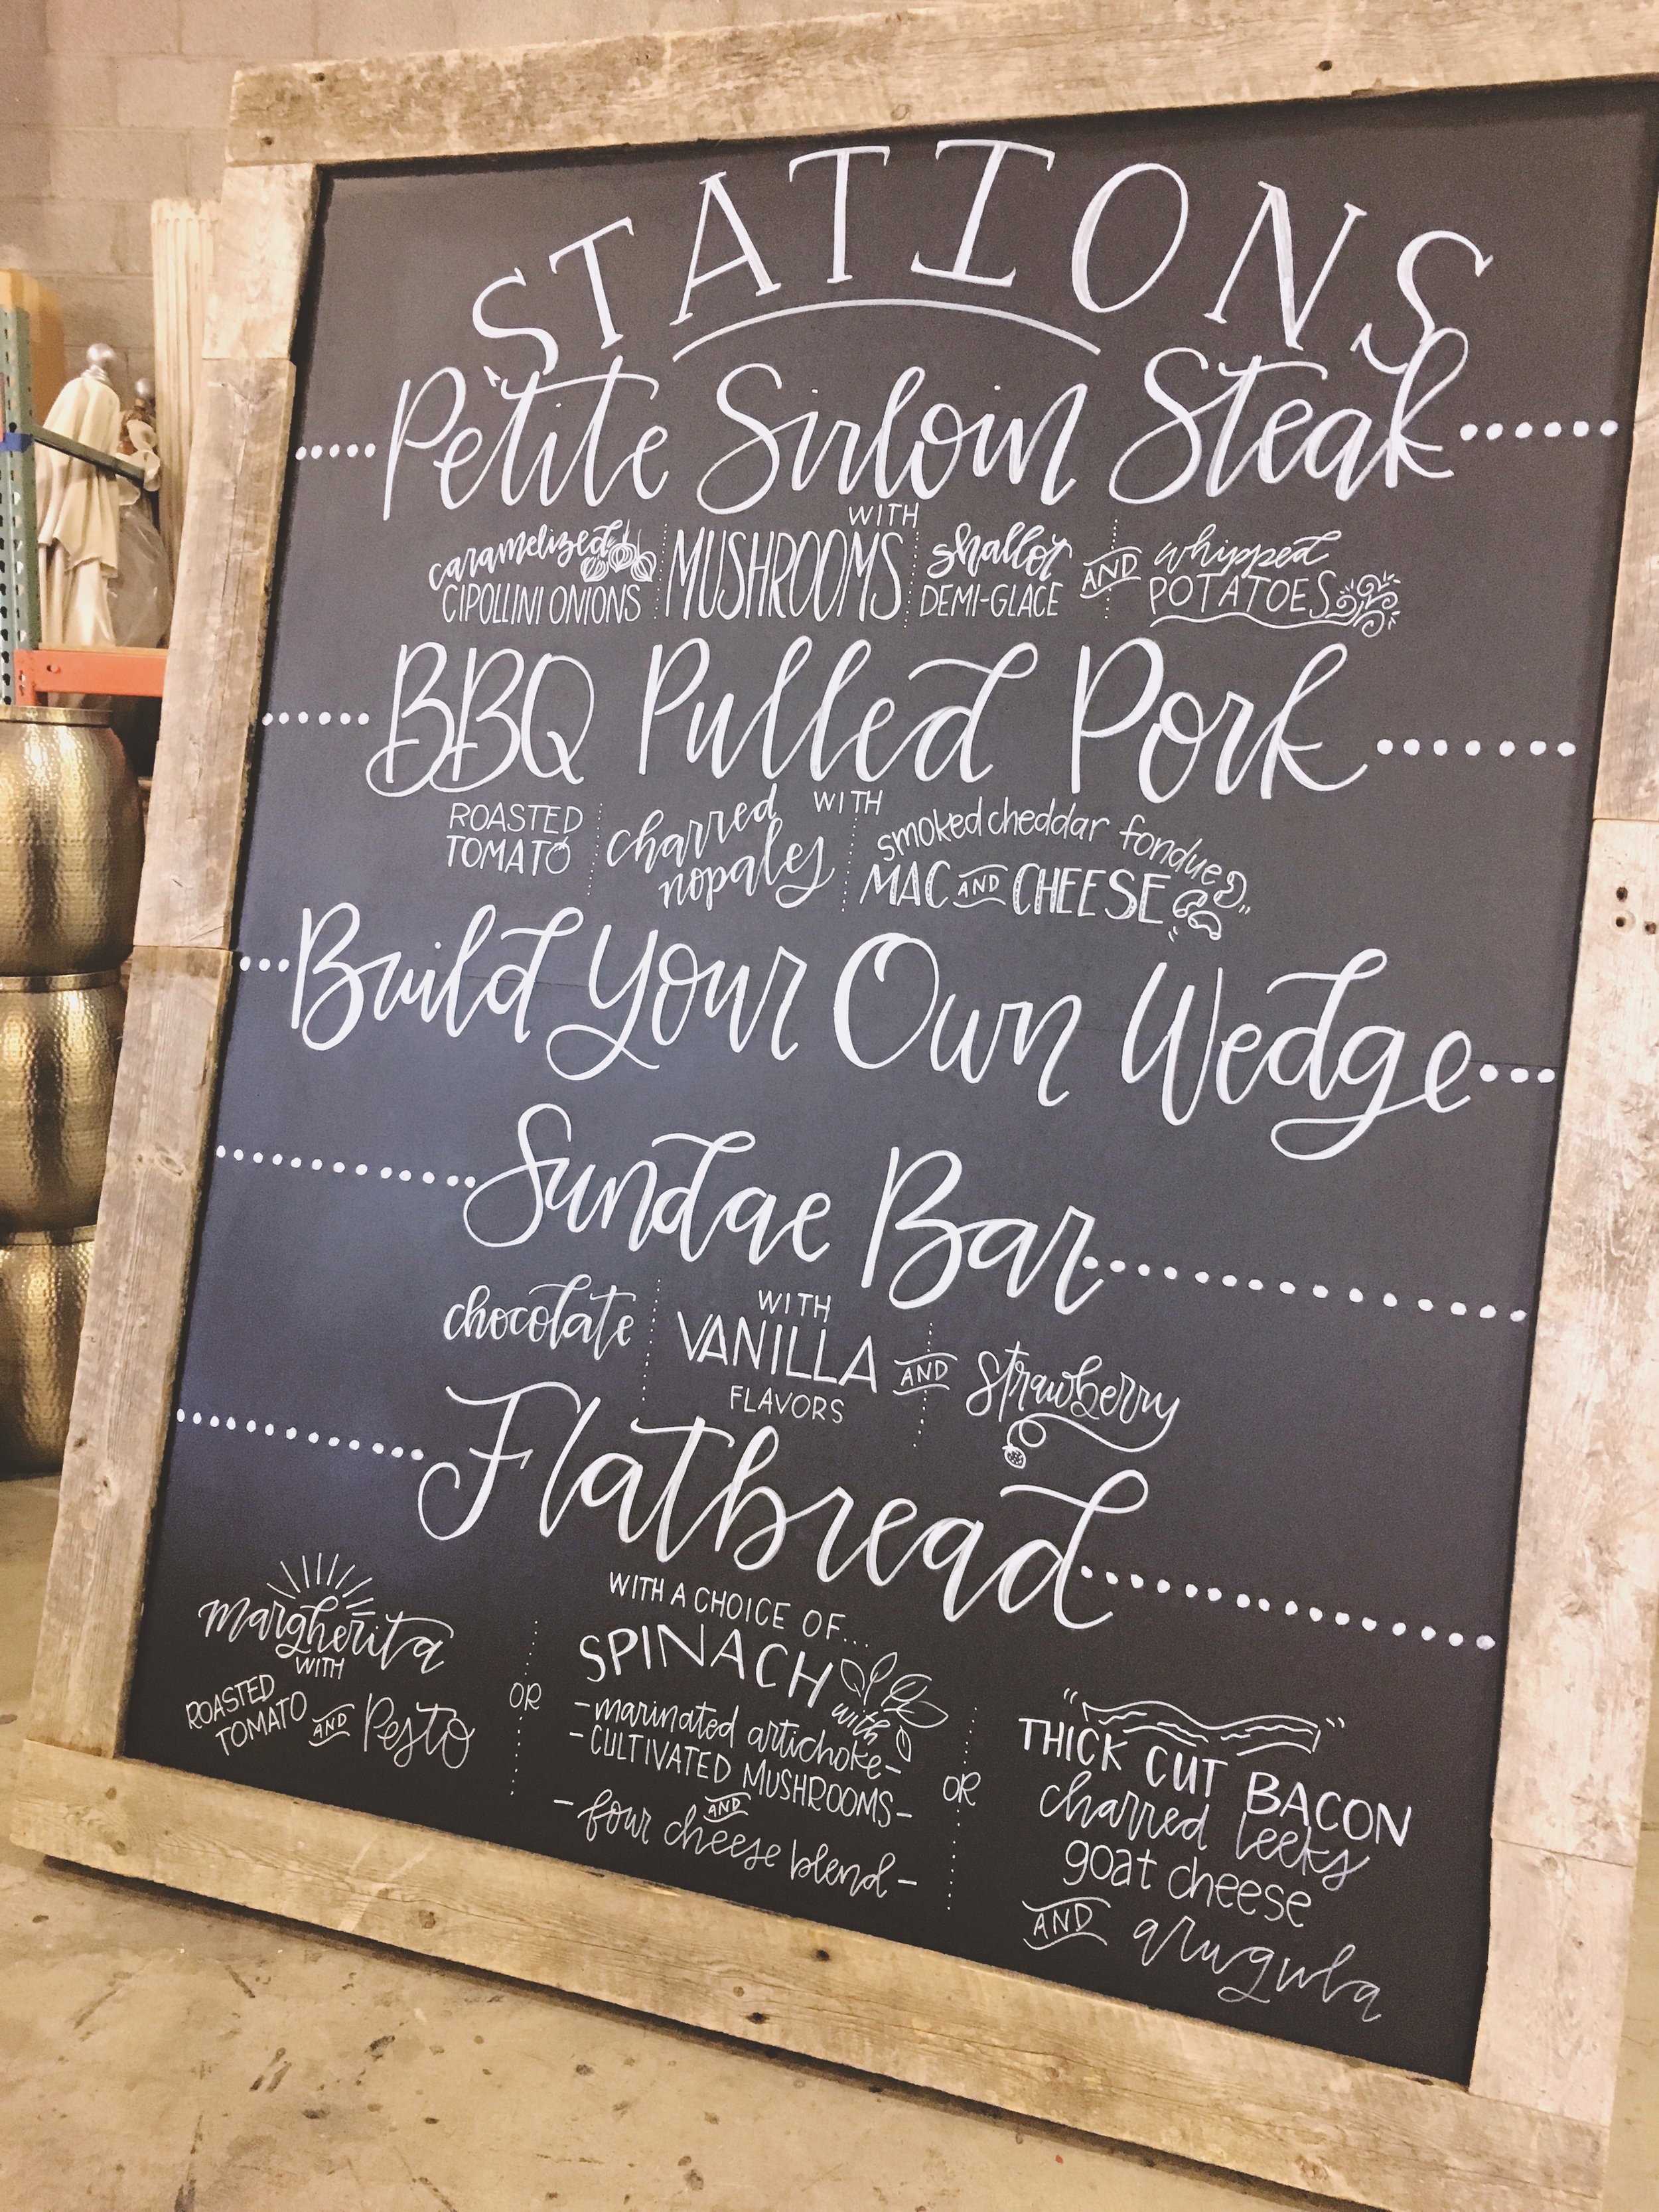 STATIONS
Petite Sirloin Steak
WITH
caramelized
CIPOLLINI ONIONS
MUSHROOMS
shallot
DEMI-GLACE
AND
whipped
POTATOES
BBQ Pulled Pork
WITH
ROASTED
TOMATO
charred
nopales
smoked cheddar fondue
MAC AND CHEESE
Build Your Own Wedge
Sundae Bar
WITH
chocolate
VANILLA
AND
strawberry
FLAVORS
Flatbread
WITH A CHOICE OF...
margherita
WITH
ROASTED
TOMATO
AND
Pesto
OR
SPINACH
with
-marinated artichoke-
-CULTIVATED MUSHROOMS-
AND
-four cheese blend-
OR
THICK CUT BACON
charred leeks
goat cheese
AND arugula